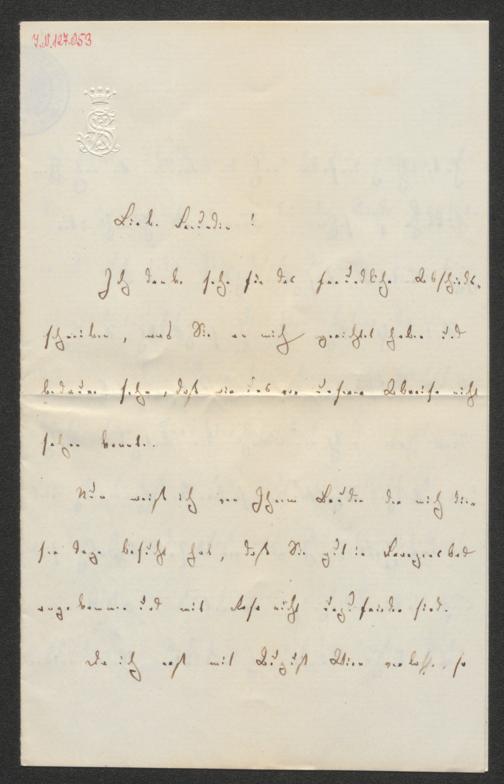 J.N.127.053
Liebe Freundin!
Ich danke sehr für das freundliche Abschieds-
schreiben, was Sie an mich gerichtet haben und
bedaure sehr, daß wir uns vor unserer Abreise nicht
sehen konnten.
Nun weiß ich von Ihrem Bruder der mich dieser
Tage besucht hat, daß Sie gut in Franzensbad
angekommen und mit nicht unzufrieden sind.
Da ich erst mit August Wien verlasse, so